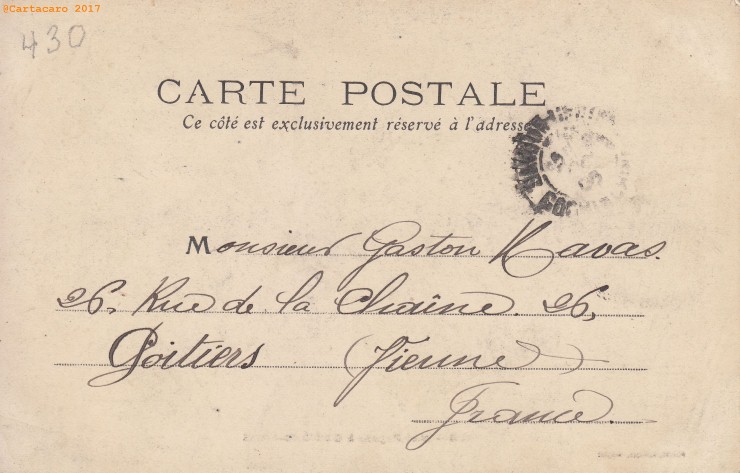 @Cartacaro 2017
430
CARTE POSTALE
Ce côté est exclusivement réservé à l'adresse
Monsieur Gaston Navas.
26, Rue de la Chaîne. 26,
Poitiers (Vienne)
France.